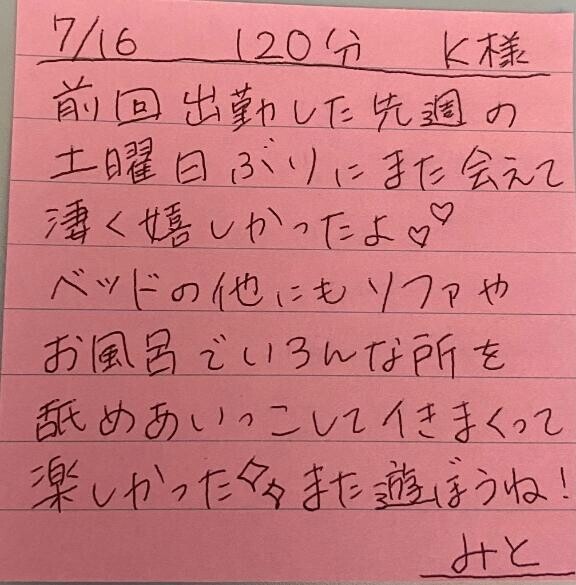 7/16 120分 K様
前回出勤した先週の
土曜日ぶりにまた会えて
凄く嬉しかったよ♡♡
ベッドの他にもソファや
お風呂でいろんな所を
舐めあいっこしてイきまくって
楽しかった✧✧また遊ぼうね!
みと